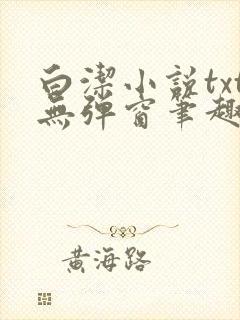 白潔小説txt
無彈窗筆趣
黄海路